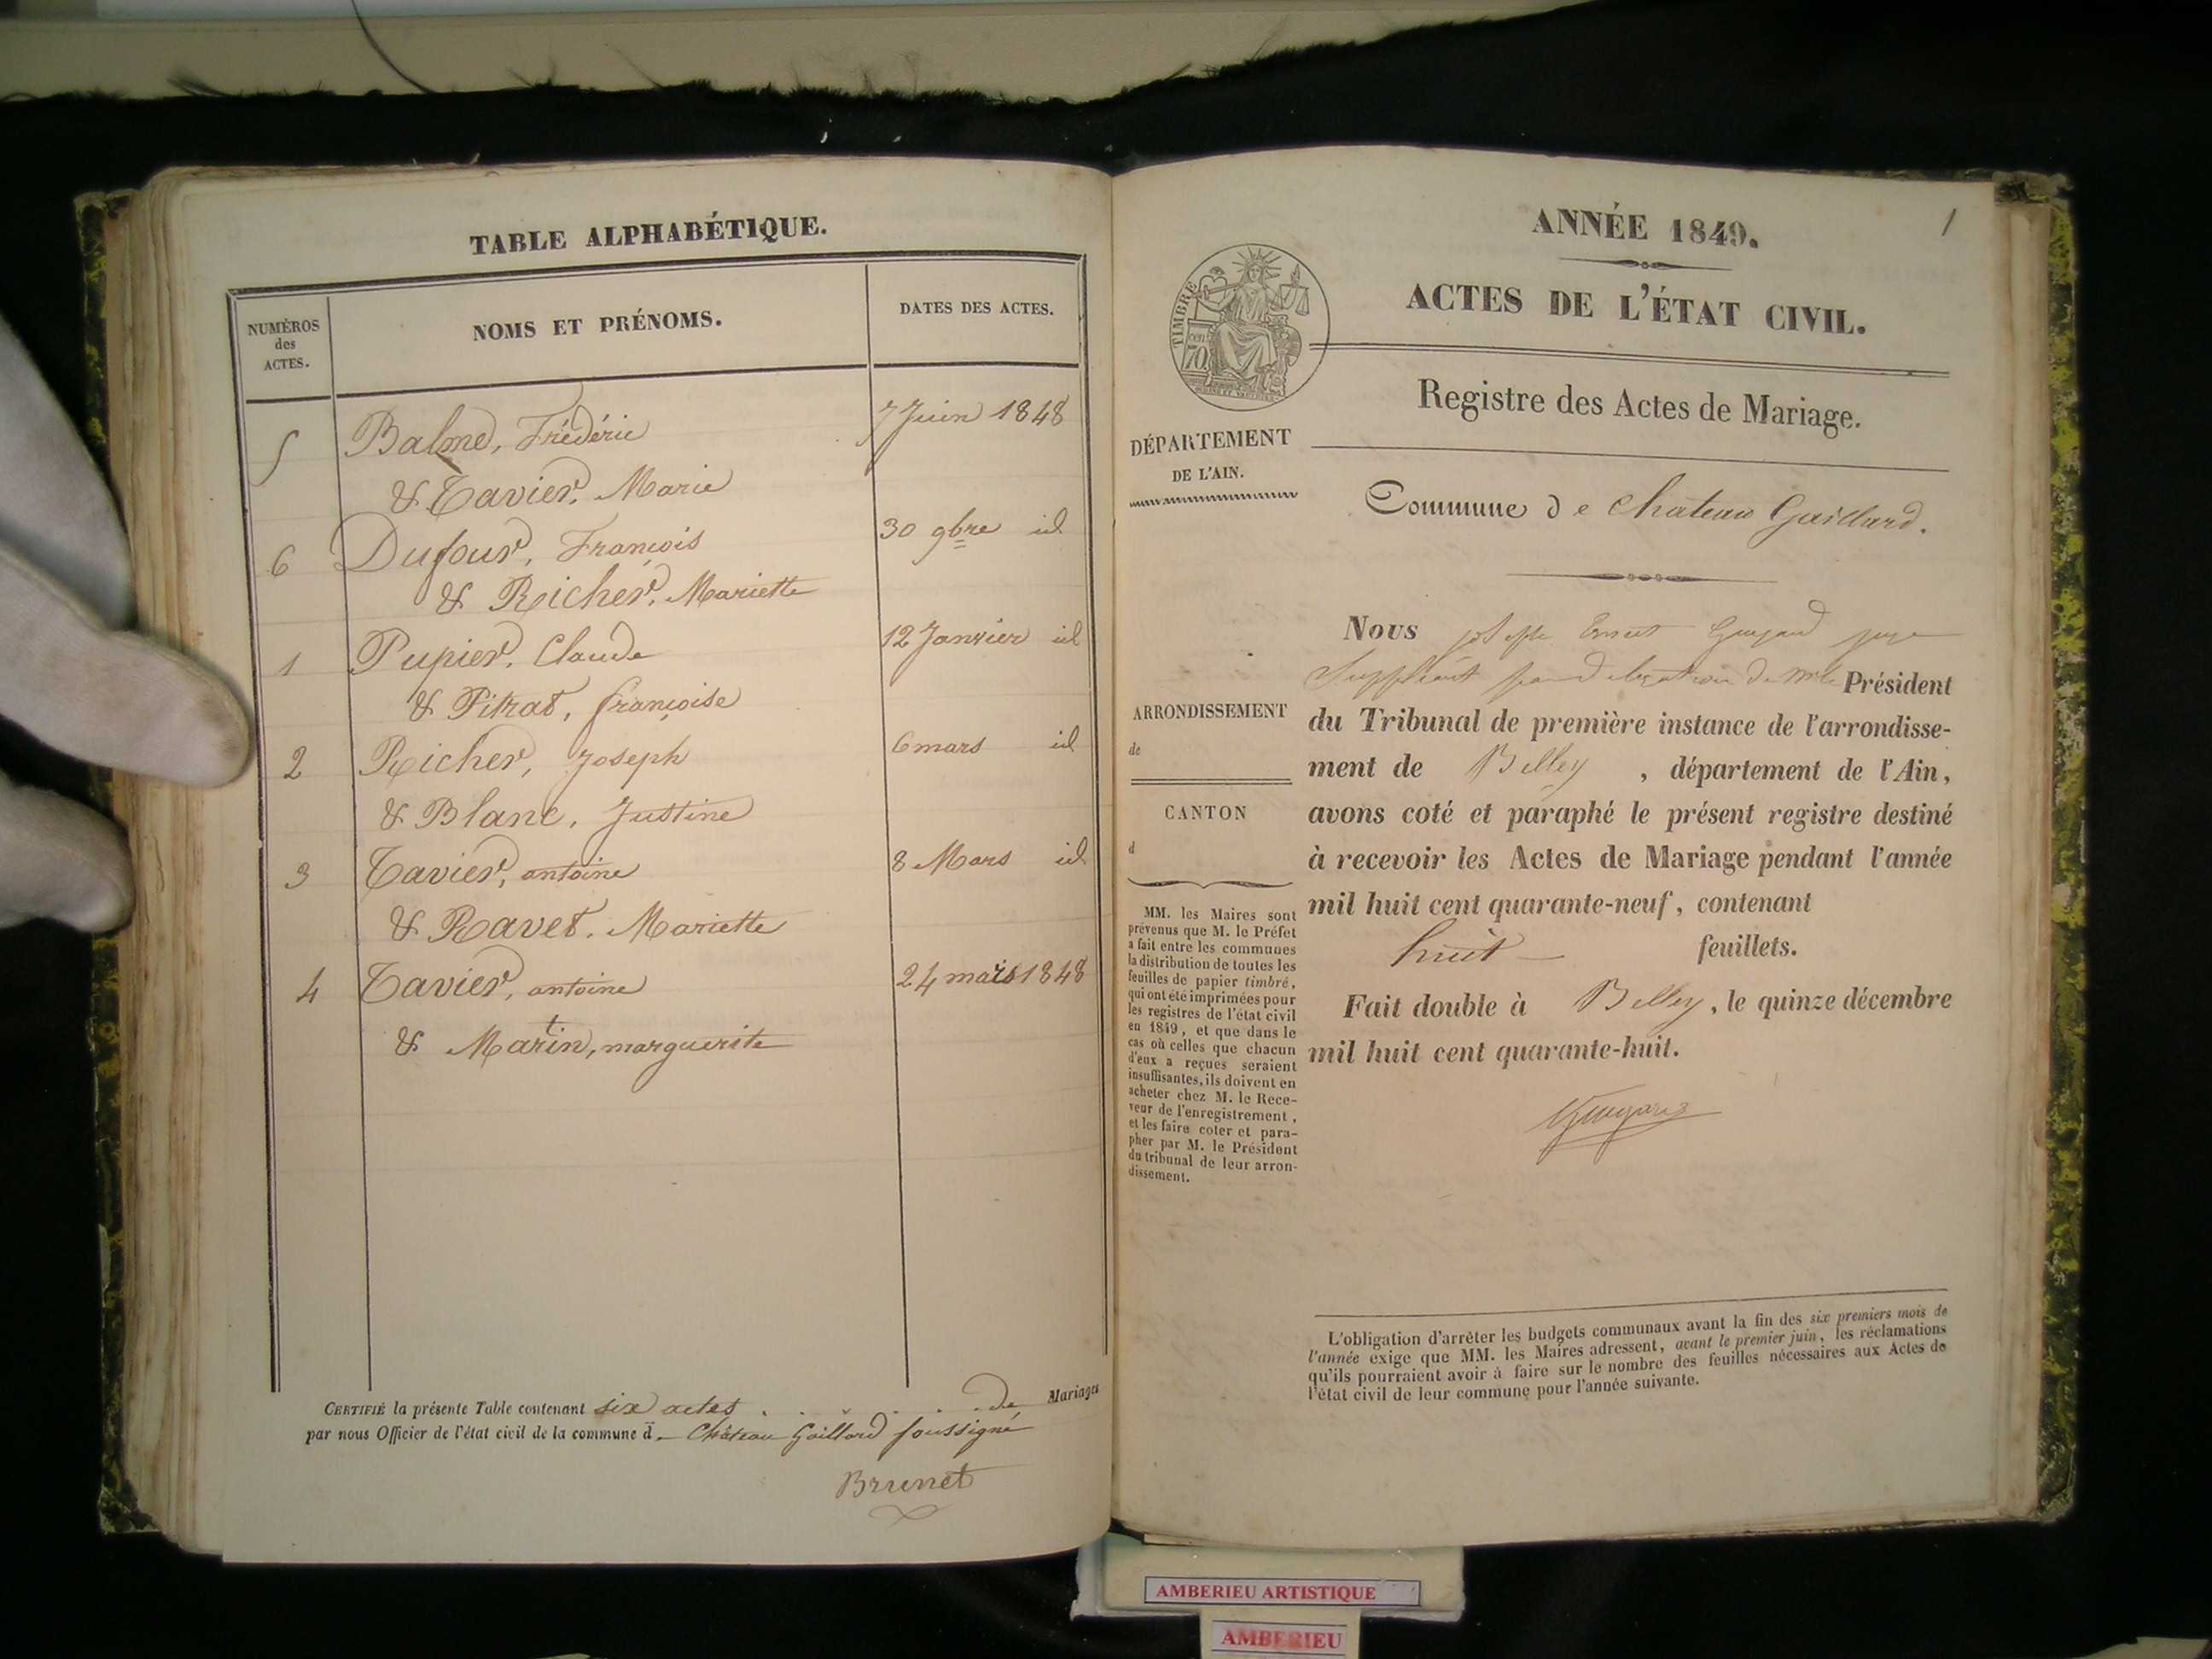 TABLE ALPHABÉTIQUE.
NUMÉROS
des
ACTES.
NOMS ET PRÉNOMS.
DATES DES ACTES.
5 Balme, Frédéric 7 Juin 1848
& Tavier, Marie
6 Dufour, François 30 9bre id
& Richer, Mariette
1 Pupier, Claude 12 Janvier id
& Pitrat, françoise
2 Richer, Joseph 6 mars id
& Blanc, Justine
3 Tavier, antoine 8 Mars id
& Ravet, Mariette
4 Tavier, antoine 24 mars 1848
& Marin, marguerite
CERTIFIÉ la présente Table contenant six actes de Mariages
par nous Officier de l'état civil de la commune d. Château Gaillard soussigné
Brunet
1
ANNÉE 1849.
ACTES DE L'ÉTAT CIVIL.
TIMBRE
70
Registre des Actes de Mariage.
DÉPARTEMENT
DE L'AIN.
Commune de chateau Gaillard.
Nous joseph Ernest juge
Suppléant par délégation de Mr le Président
ARRONDISSEMENT
de
du Tribunal de première instance de l'arrondisse-
ment de Belley , département de l'Ain,
CANTON
d
avons coté et paraphé le présent registre destiné
à recevoir les Actes de Mariage pendant l'année
mil huit cent quarante-neuf, contenant
huit feuillets.
Fait double à Belley, le quinze décembre
mil huit cent quarante-huit.
MM. les Maires sont
prévenus que M. le Préfet
a fait entre les communes
la distribution de toutes les
feuilles de papier timbré,
qui ont été imprimées pour
les registres de l'état civil
en 1849, et que dans le
cas où celles que chacun
d'eux a reçues seraient
insuffisantes, ils doivent en
acheter chez M. le Rece-
veur de l'enregistrement,
et les faire coter et para-
pher par M. le Président
du tribunal de leur arron-
dissement.
L'obligation d'arrêter les budgets communaux avant la fin des six premiers mois de
l'année exige que MM. les Maires adressent, avant le premier juin, les réclamations
qu'ils pourraient avoir à faire sur le nombre des feuilles nécessaires aux Actes de
l'état civil de leur commune pour l'année suivante.
AMBERIEU ARTISTIQUE
AMBERIEU